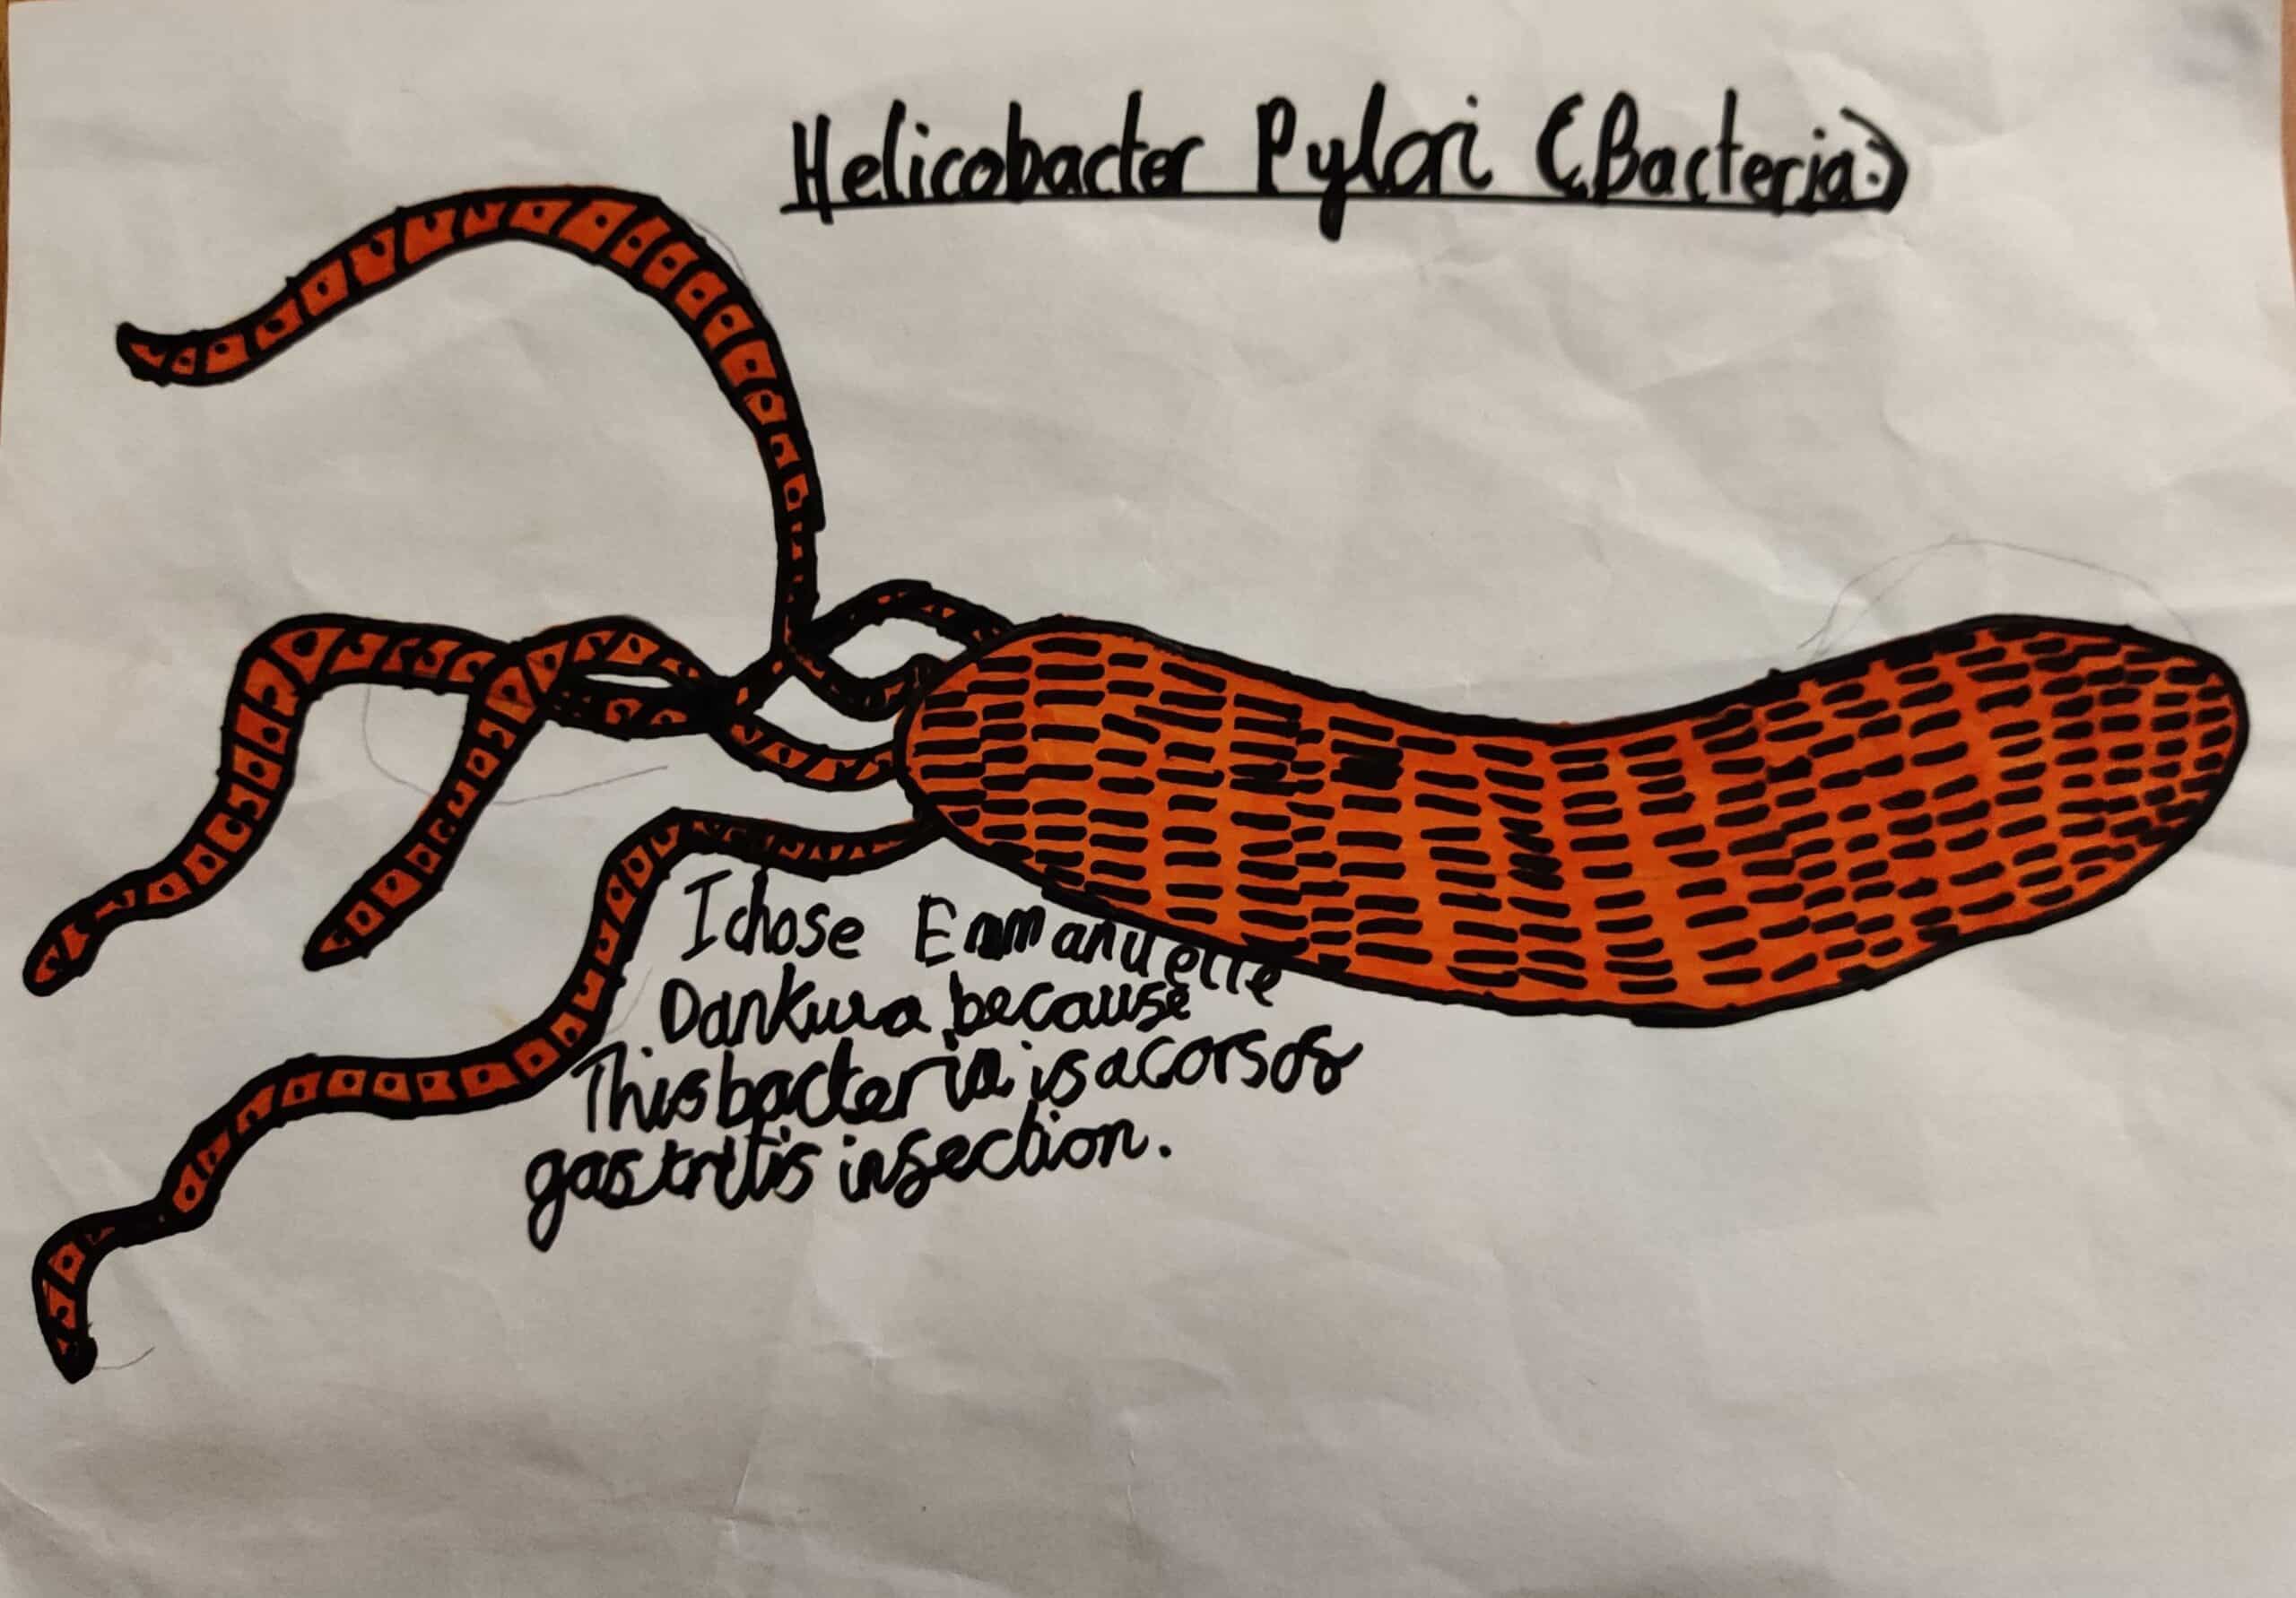 Helicobacter Pylori (Bacteria.)
I chose Emmanuelle
Dankwa because
This bacteria is a cors of
gastritis infection.